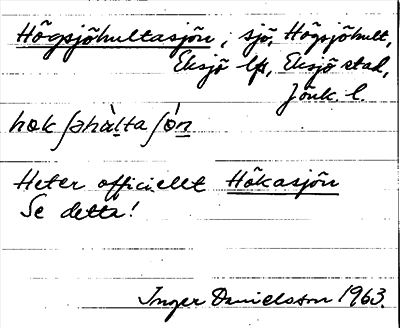 Högsjöhultasjön, sjö, Högsjöhult,
Eksjö lfs, Eksjö stad,
Jönk. l.
høkʃøhàlta ʃǿn
Heter officiellt Hökasjön
Se detta!
Inger Danielsson 1963.